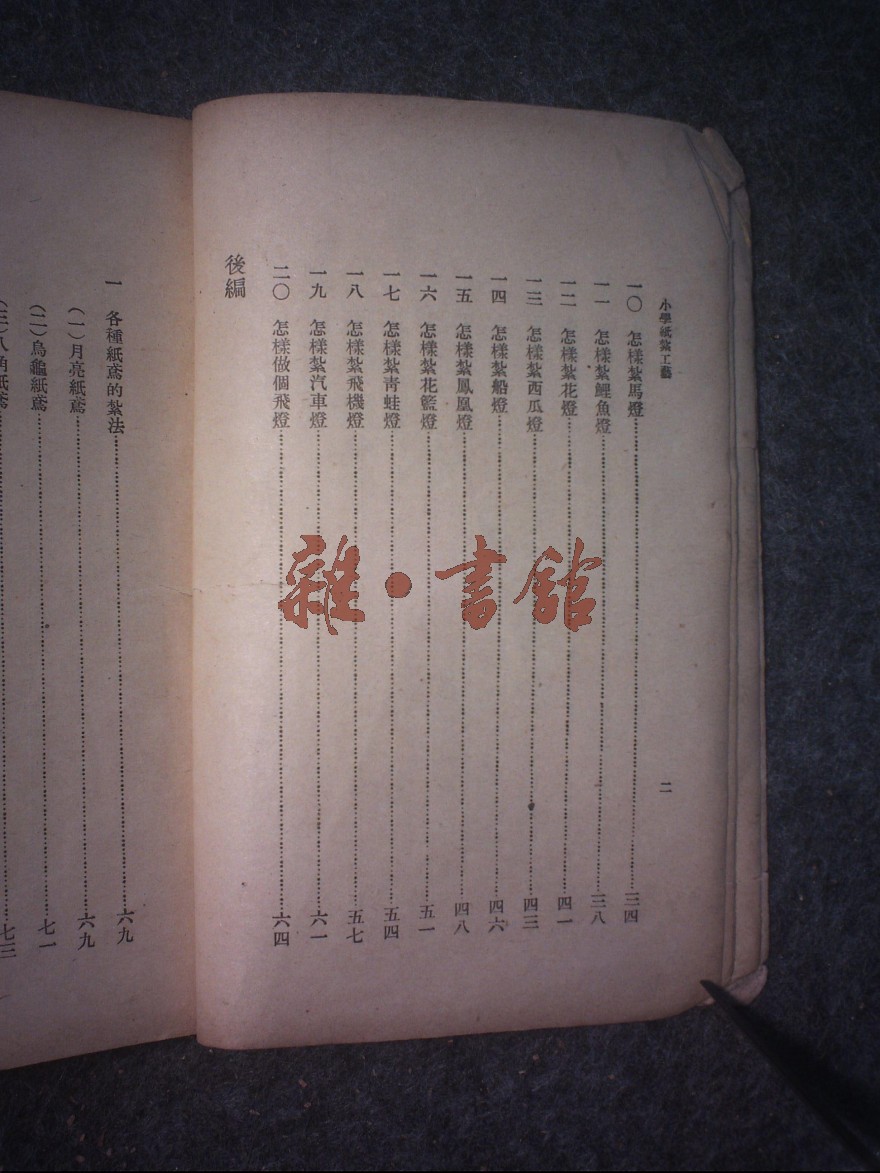 小學紙紮工藝
二
一〇 怎樣紮馬燈……三四
一一 怎樣紮鯉魚燈……三八
一二 怎樣紮花燈……四一
一三 怎樣紮西瓜燈……四三
一四 怎樣紮船燈……四六
一五 怎樣紮鳳凰燈……四八
一六 怎樣紮花籃燈……五一
一七 怎樣紮青蛙燈……五四
一八 怎樣紮飛機燈……五七
一九 怎樣紮汽車燈……六一
二〇 怎樣做個飛燈……六四
後編
一 各種紙鳶的紮法……六九
（一）月亮紙鳶……六九
（二）烏龜紙鳶……七一
（三）八角紙鳶……七三
雜·書館